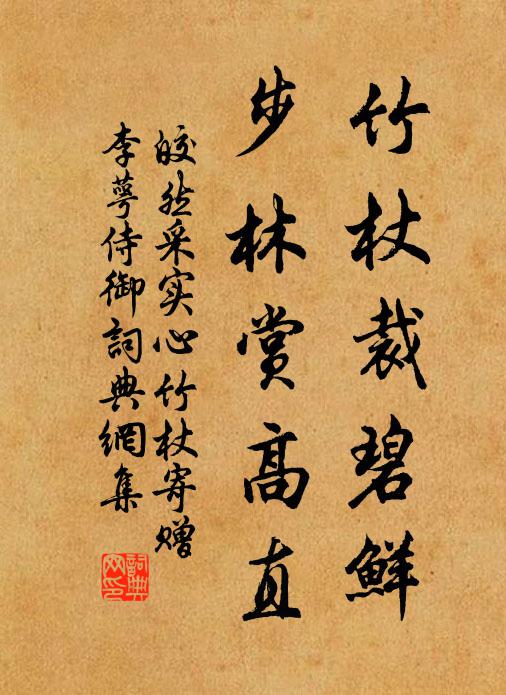 竹杖裁碧鮮
步林赏高直
皎然采实心竹杖寄赠
李萼侍御詞典網集
詞典
网印